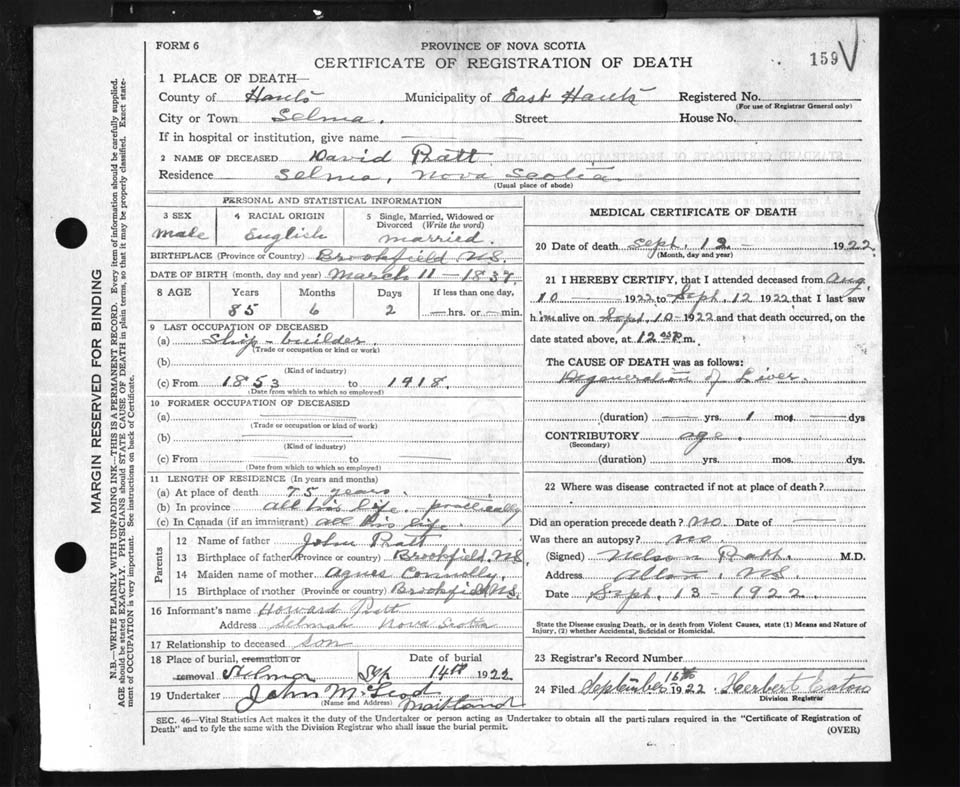 FORM 6
PROVINCE OF NOVA SCOTIA
CERTIFICATE OF REGISTRATION OF DEATH
159
1 PLACE OF DEATH—
County of Hants Municipality of East Hants Registered No.
(For use of Registrar General only)
City or Town Selma. Street House No.
If in hospital or institution, give name
2 NAME OF DECEASED David Pratt
Residence Selma, Nova Scotia
(Usual place of abode)
PERSONAL AND STATISTICAL INFORMATION
3 SEX
male
4 RACIAL ORIGIN
English
5 Single, Married, Widowed or Divorced (Write the word)
married.
BIRTHPLACE (Province or Country) Brookfield N.S.
DATE OF BIRTH (month, day and year) March 11 – 1837
8 AGE Years Months Days If less than one day,
85 6 2 — hrs. or — min.
9 LAST OCCUPATION OF DECEASED
(a) Ship-builder.
(Trade or occupation or kind or work)
(b)
(Kind of industry)
(c) From 1853 to 1918.
(Date from which to which so employed)
10 FORMER OCCUPATION OF DECEASED
(a)
(Trade or occupation or kind of work)
(b)
(Kind of industry)
(c) From — to —
(Date from which to which so employed)
11 LENGTH OF RESIDENCE (In years and months)
(a) At place of death 75 years.
(b) In province all his life. practically
(c) In Canada (if an immigrant) all his life.
Parents
12 Name of father John Pratt
13 Birthplace of father (Province or country) Brookfield, N.S.
14 Maiden name of mother Agnes Connolly.
15 Birthplace of mother (Province or country) Brookfield N.S.
16 Informant's name Howard Pratt
Address Selmah Nova Scotia
17 Relationship to deceased son
18 Place of burial, cremation or removal Selma
Date of burial
Sep 14th 1922
19 Undertaker John McLeod
(Name and Address) Maitland
MEDICAL CERTIFICATE OF DEATH
20 Date of death Sept. 12 – 1922
(Month, day and year)
21 I HEREBY CERTIFY, that I attended deceased from Aug.
10 — 1922 to Sept. 12 1922 that I last saw
him alive on Sept. 10 – 1922 and that death occurred, on the
date stated above, at 12 p m.
The CAUSE OF DEATH was as follows:
Degeneration of Liver.
(duration) — yrs. 1 mos. — dys
CONTRIBUTORY age.
(Secondary)
(duration) yrs. mos. dys.
22 Where was disease contracted if not at place of death?
Did an operation precede death? no. Date of —
Was there an autopsy? no.
(Signed) Nelson M.D.
Address N.S.
Date Sept. 13 – 1922.
State the Disease causing Death, or in death from Violent Causes, state (1) Means and Nature of
Injury, (2) whether Accidental, Suicidal or Homicidal.
23 Registrar's Record Number
24 Filed September 16th 1922 Herbert Eaton
Division Registrar
SEC. 46—Vital Statistics Act makes it the duty of the Undertaker or person acting as Undertaker to obtain all the particulars required in the "Certificate of Registration of
Death" and to fyle the same with the Division Registrar who shall issue the burial permit.
(OVER)
MARGIN RESERVED FOR BINDING
N.B.—WRITE PLAINLY WITH UNFADING INK—THIS IS A PERMANENT RECORD. Every item of information should be carefully supplied.
AGE should be stated EXACTLY. PHYSICIANS should STATE CAUSE OF DEATH in plain terms, so that it may be properly classified. Exact state-
ment of OCCUPATION is very important. See instructions on back of Certificate.